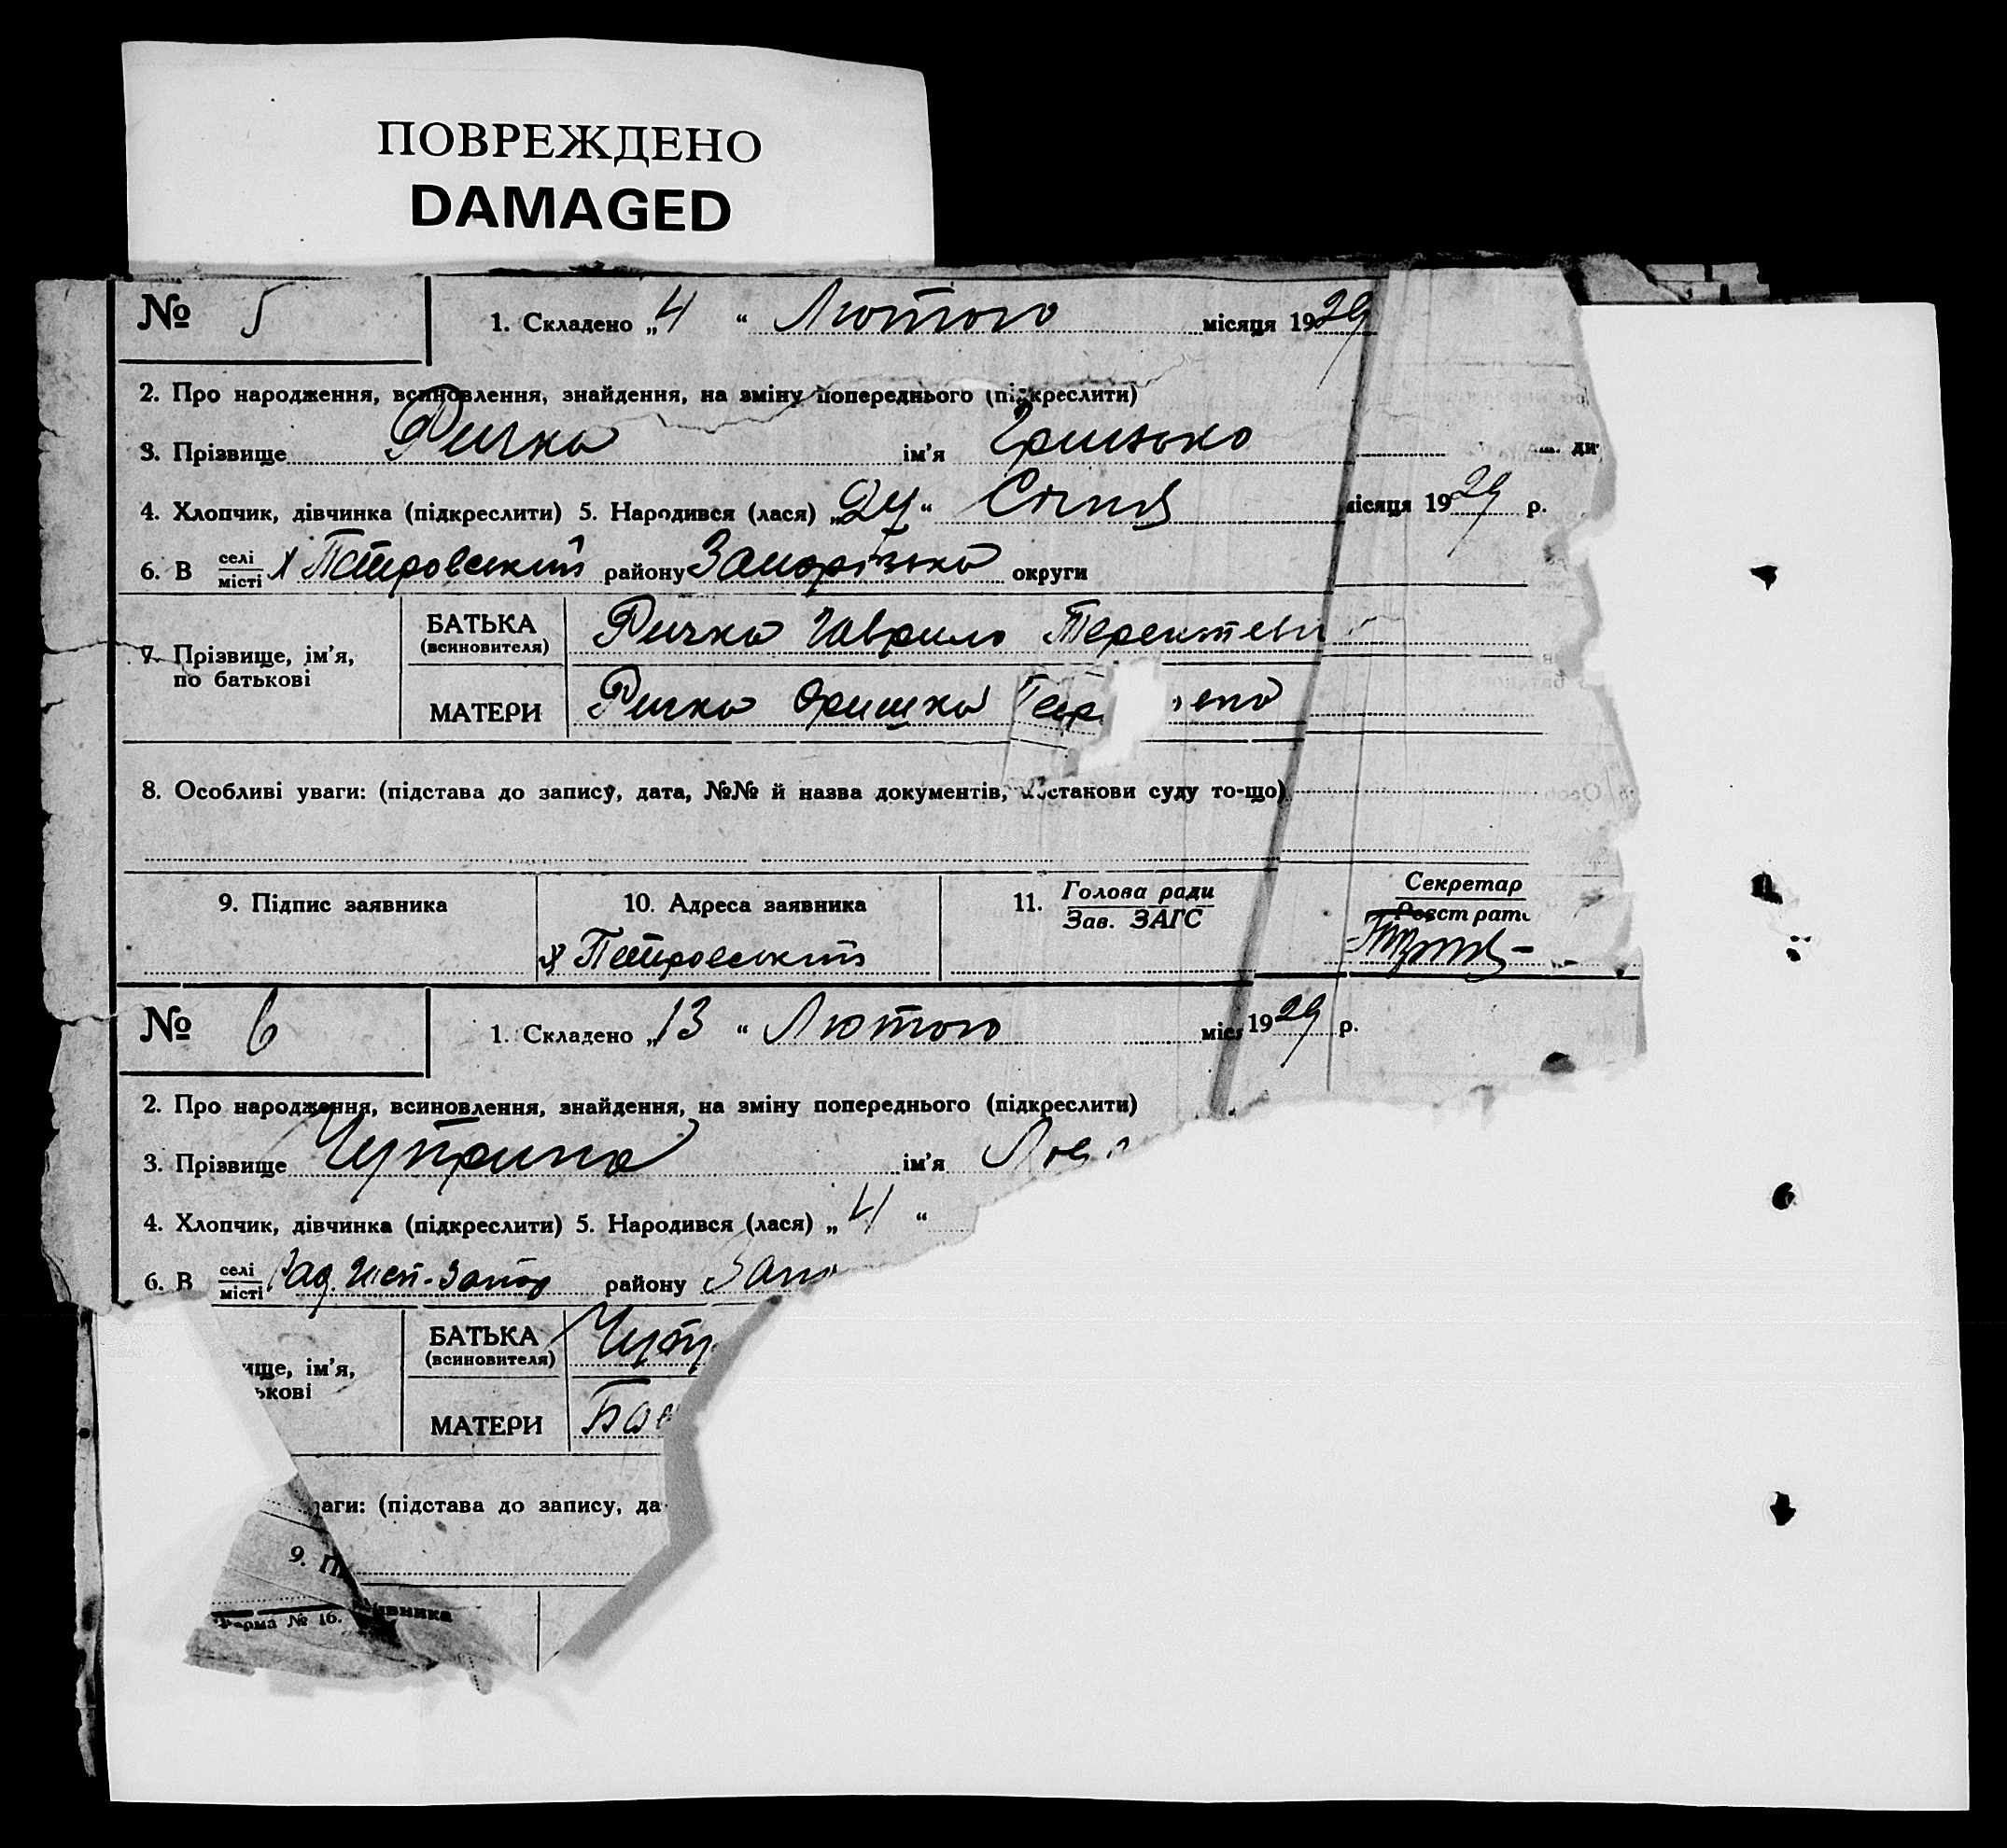 ПОВРЕЖДЕНО
DAMAGED
№ 5 1. Складено „4“ Лютого місяця 1929
2. Про народження, всиновлення, знайдення, на зміну попереднього (підкреслити)
3. Прізвище Ричка ім'я Грицько ди
4. Хлопчик, дівчинка (підкреслити) 5. Народився (лася) „24“ Січня місяця 1929 р.
6. В селі/місті х Петровський району Запорізька округи
7. Прізвище, ім'я, по батькові
БАТЬКА (всиновителя) Ричка Гаврило Терентеви
МАТЕРИ Ричка Оришка
8. Особливі уваги: (підстава до запису, дата, №№ й назва документів, постанови суду то-що)
9. Підпис заявника 10. Адреса заявника 11. Голова ради / Зав. ЗАГС Секретар / Реєстрат
х Петровський
№ 6 1. Складено „13“ Лютого міся 1929 р.
2. Про народження, всиновлення, знайдення, на зміну попереднього (підкреслити)
3. Прізвище Чуприна ім'я
4. Хлопчик, дівчинка (підкреслити) 5. Народився (лася) „4“
6. В селі/місті району Запо
ище, ім'я,
ькові
БАТЬКА (всиновителя) Чупр
МАТЕРИ
ваги: (підстава до запису, да
9. П явника
Форма № 16.